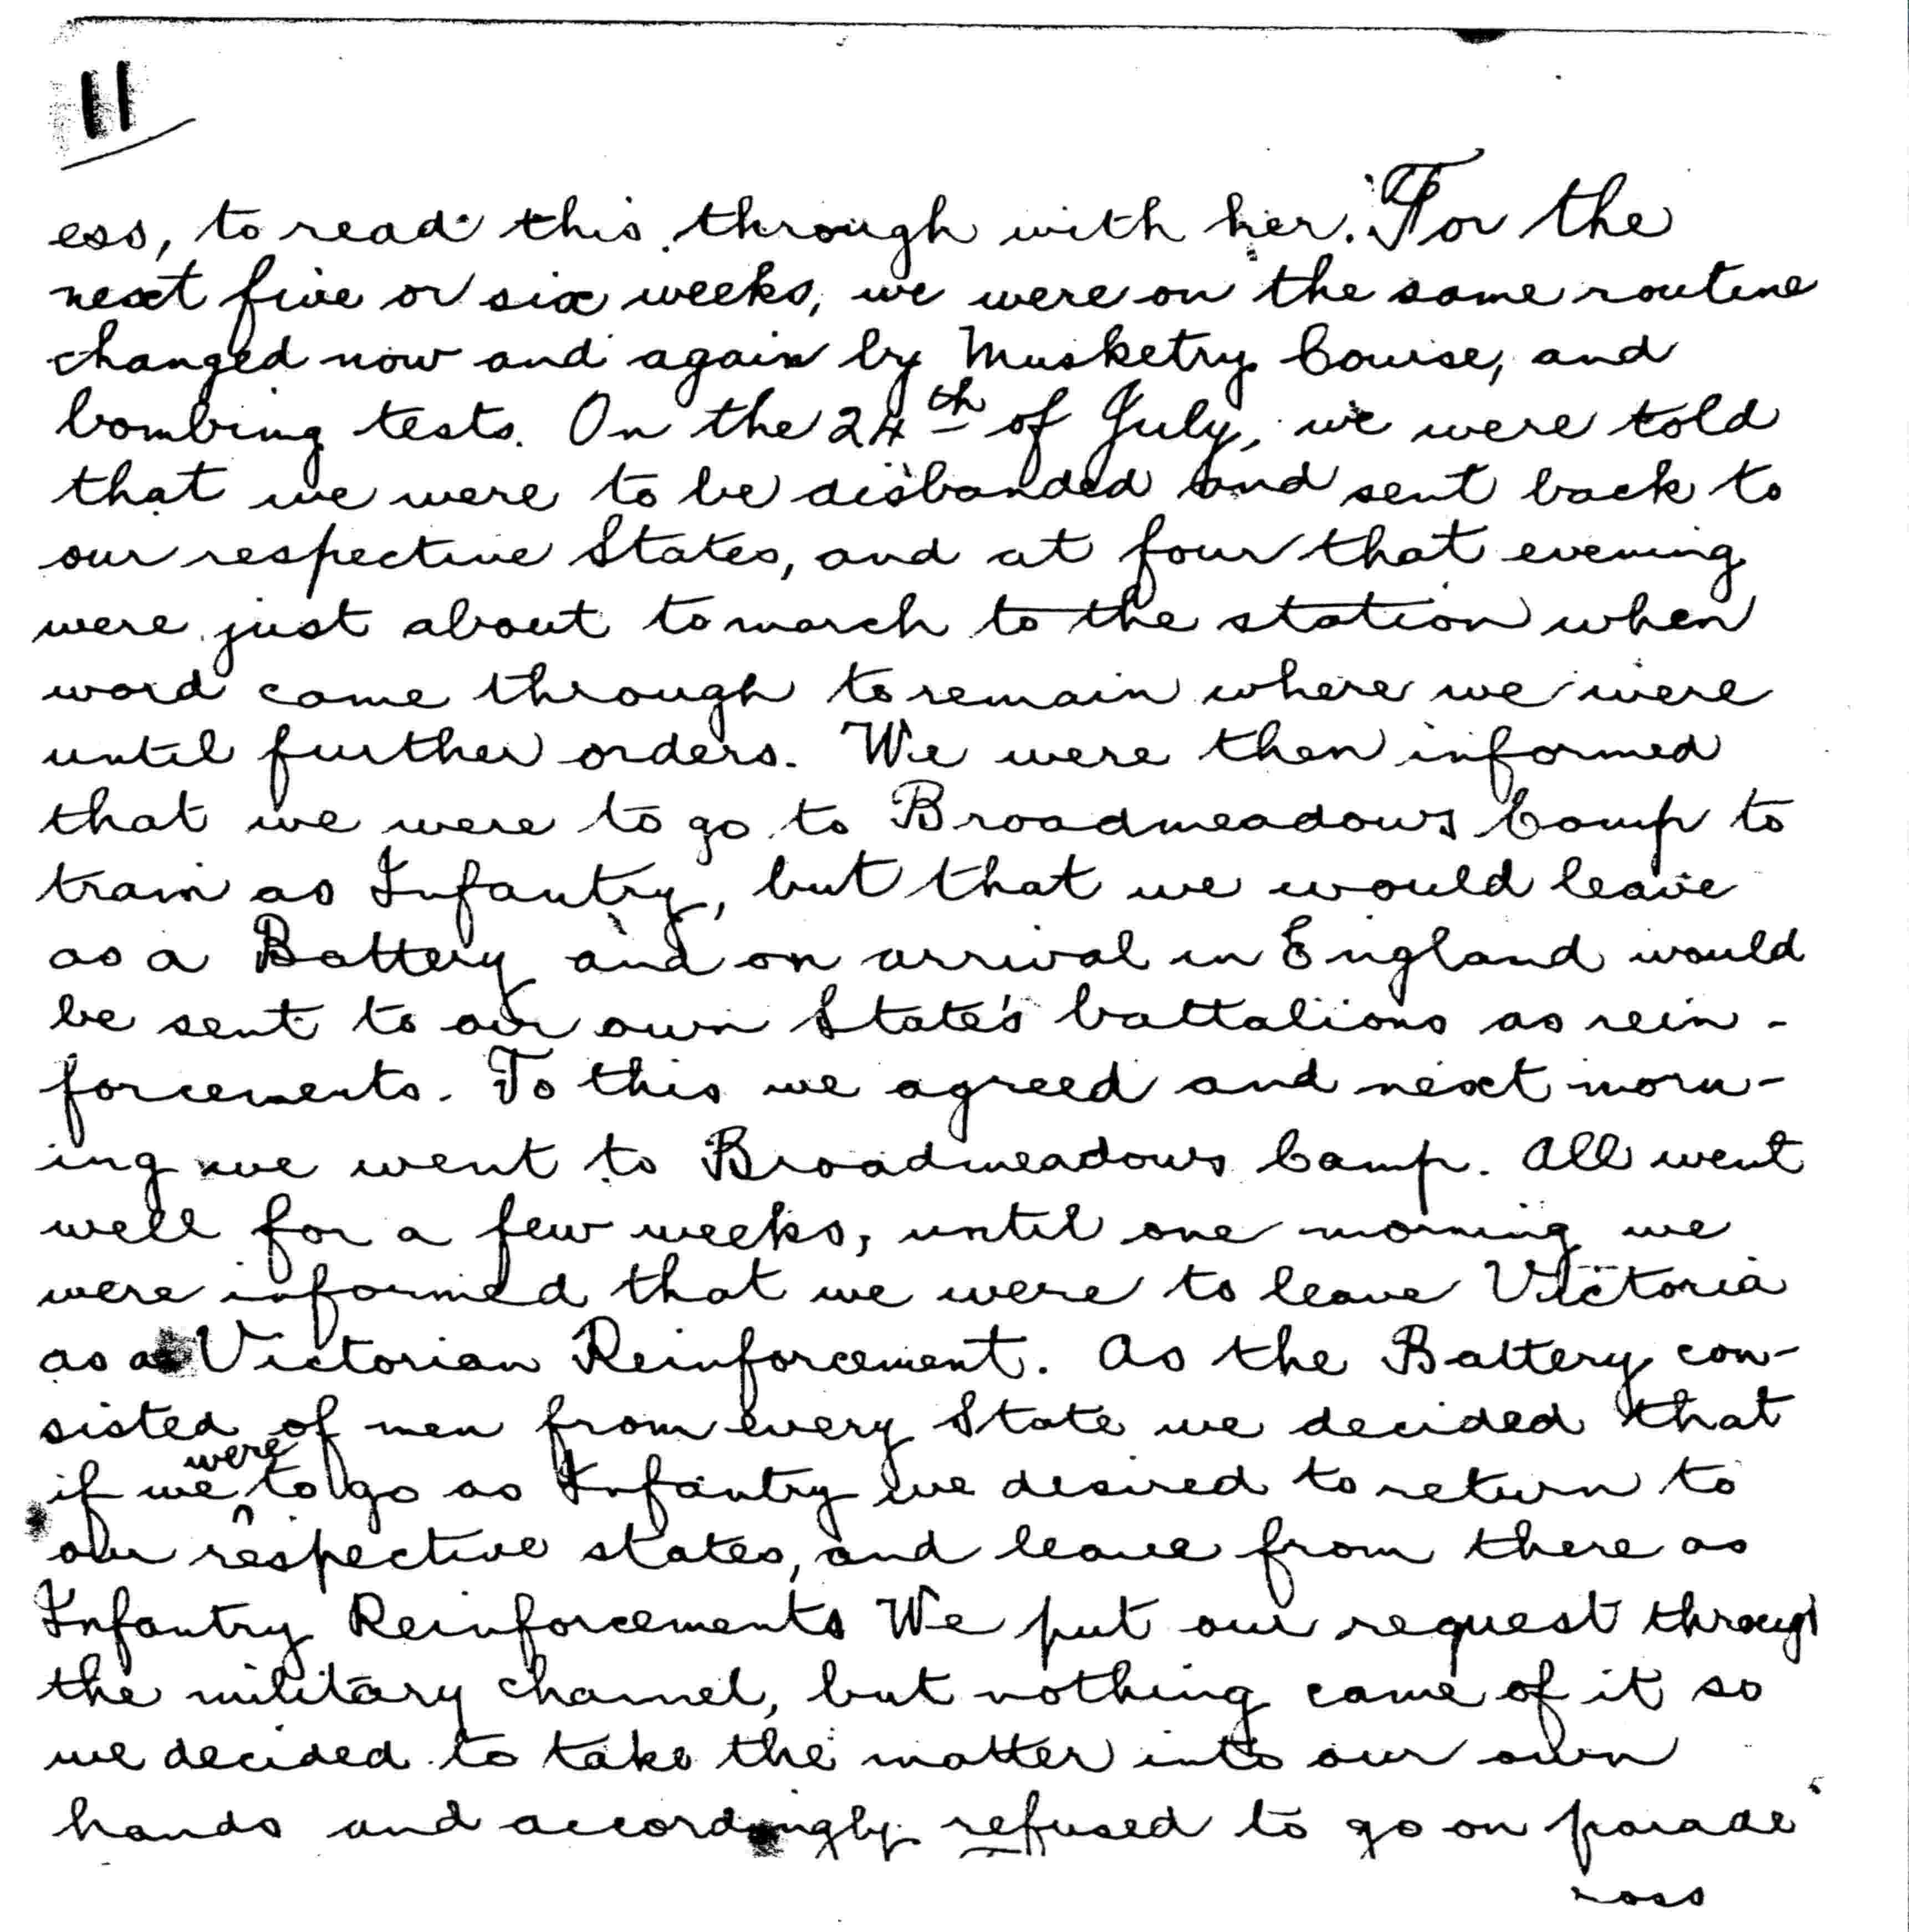 11
ess, to read this through with her. For the
next five or six weeks, we were on the same routine
changed now and again by Musketry Course, and
bombing tests. On the 24th of July, we were told
that we were to be disbanded and sent back to
our respective States, and at four that evening
were just about to march to the station when
word came through to remain where we were
until further orders. We were then informed
that we were to go to Broadmeadows Camp to
train as Infantry, but that we would leave
as a Battery and on arrival in England would
be sent to our own State's battalions as rein-
forcements. To this we agreed and next morn-
ing we went to Broadmeadows Camp. All went
well for a few weeks, until one morning we
were informed that we were to leave Victoria
as a Victorian Reinforcement. As the Battery con-
sisted of men from every State we decided that
if we were to go as Infantry we desired to return to
our respective states, and leave from there as
Infantry Reinforcements We put our request through
the military channel, but nothing came of it so
we decided to take the matter into our own
hands and accordingly refused to go on parade